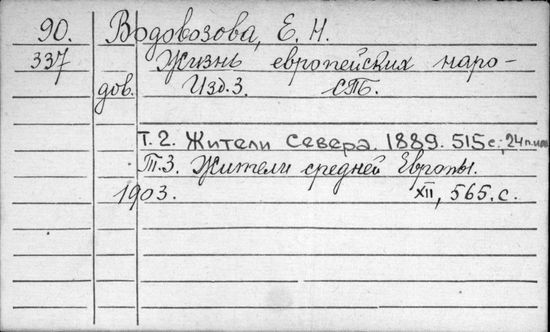 90. Водовозова, Е. Н.
337 Жизнь европейских наро-
дов. Изд. 3. СПб.
Т. 2. Жители Севера. 1889. 515 с.; 24 п.илл
Т. 3. Жители средней Европы.
1903. XII, 565. с.